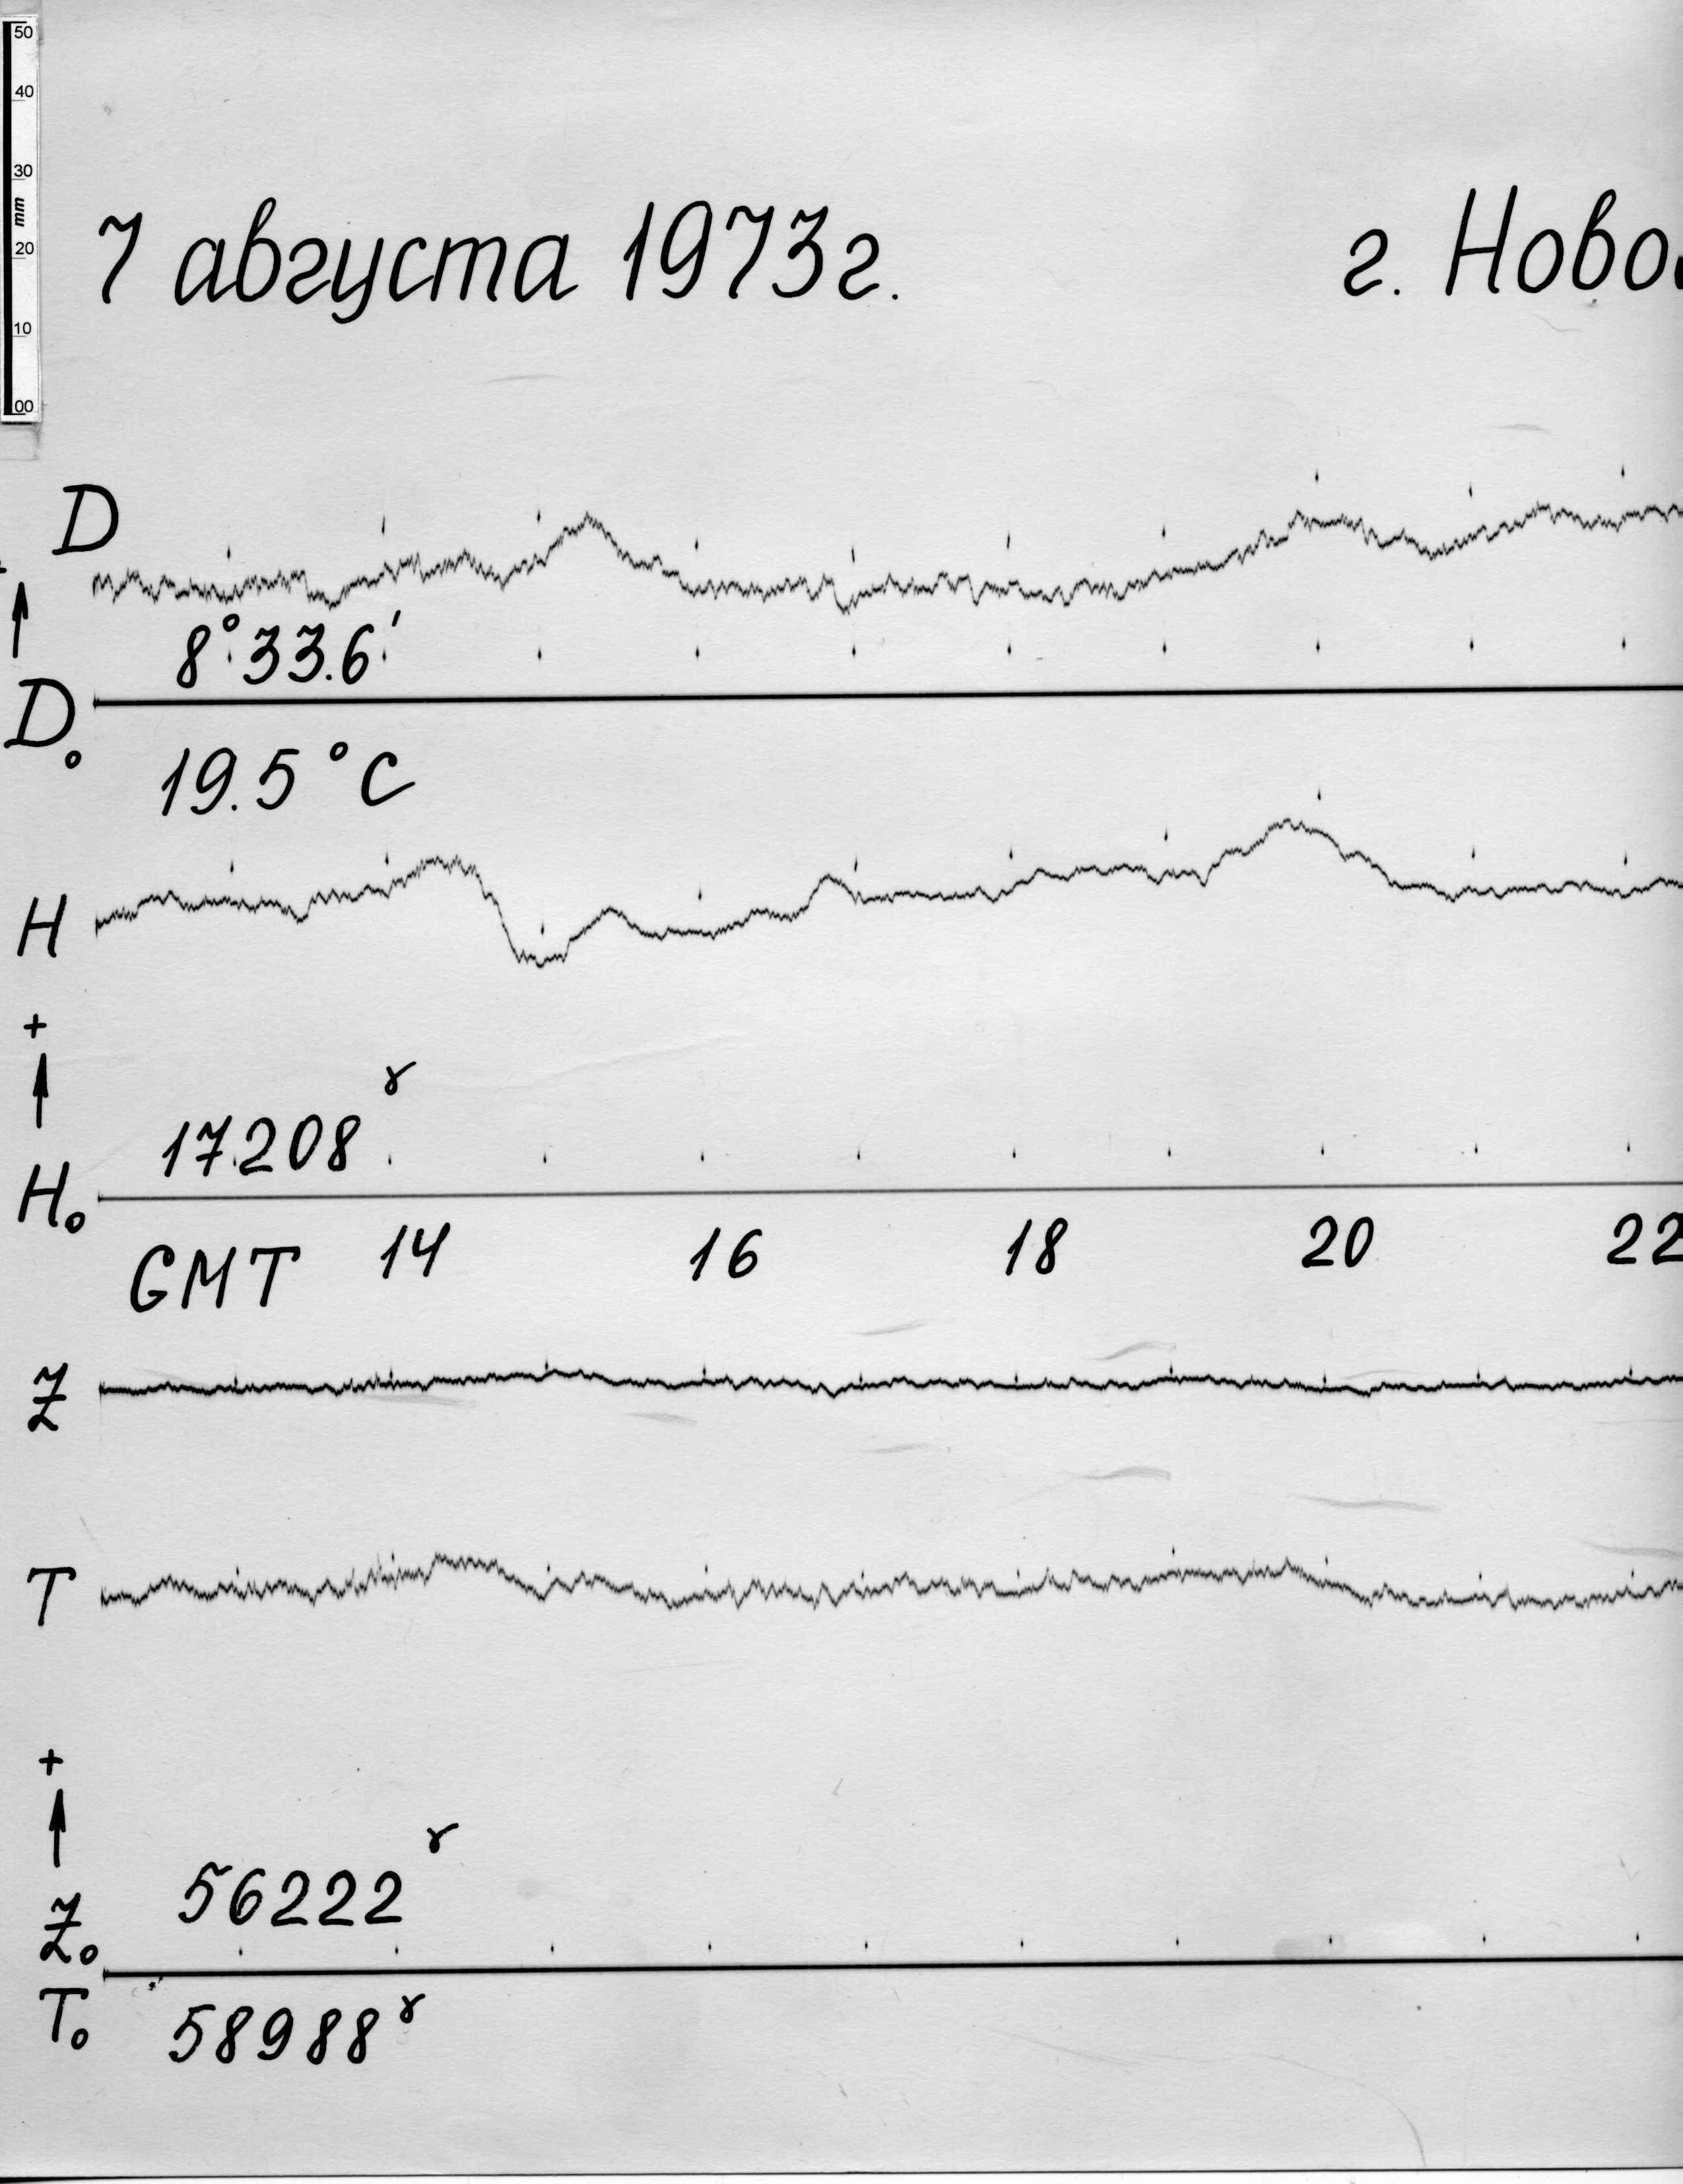 50
40
30
mm
20
10
00
7 августа 1973г.
г. Ново
D
+
8°33.6'
D₀
19.5°C
H
+
17208γ
H₀
GMT 14 16 18 20 22
Z
T
+
56222γ
Z₀
T₀ 58988γ